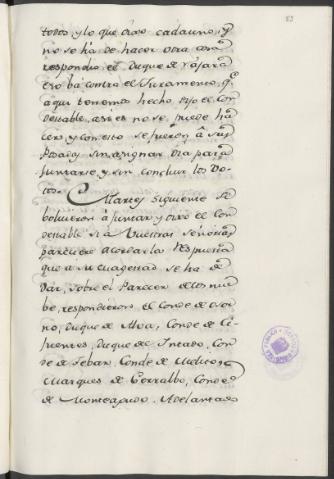 83
todos, y lo que dixo cada uno, y q̃
no se há de hacer otra cosa
respondio el Duque de Najara
eso bá contra el Juramento, q̃
aqui tenemos hecho, dijo el Con
destable, aso es no se puede ha
cer, y con esto se fueron â sus
Posadas sin asignar dia para
juntarse, y sin concluir los Vo-
tos.
Martes siguiente se
bolvieron à juntar, y dixo el Con
destable si à Vuestras Señorias
pareciere acordar la respuesta
que a su Magestad se ha de
dar, sobre el Parecer de los nue
be, respondieron el Conde de Osor
no, Duque de Alva, Conde de Ci-
fuentes, Duque de Intado, Con
de de Teban, Conde de Medico,
Marques de Cerralbo, Conde
de Monteagudo, Adelantado